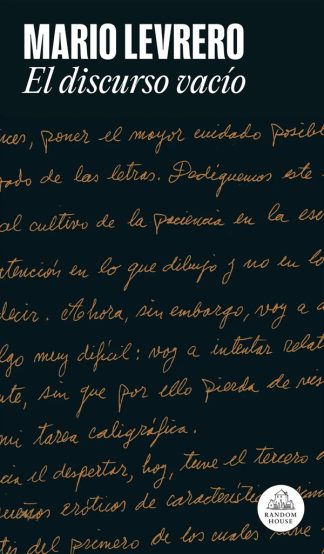 MARIO LEVRERO
El discurso vacío
nces, poner el mayor cuidado posibl
zado de las letras. Dediquemos este
al cultivo de la paciencia en la esc
atención en lo que dibujo y no en lo
decir. Ahora, sin embargo, voy a a
lgo muy difícil: voy a intentar relat
nte, sin que por ello pierda de vis
mi tarea caligráfica.
cia el despertar, hoy, tuve el tercero d
sueños eróticos de características sim
tes del primero de los cuales tuve
RANDOM
HOUSE